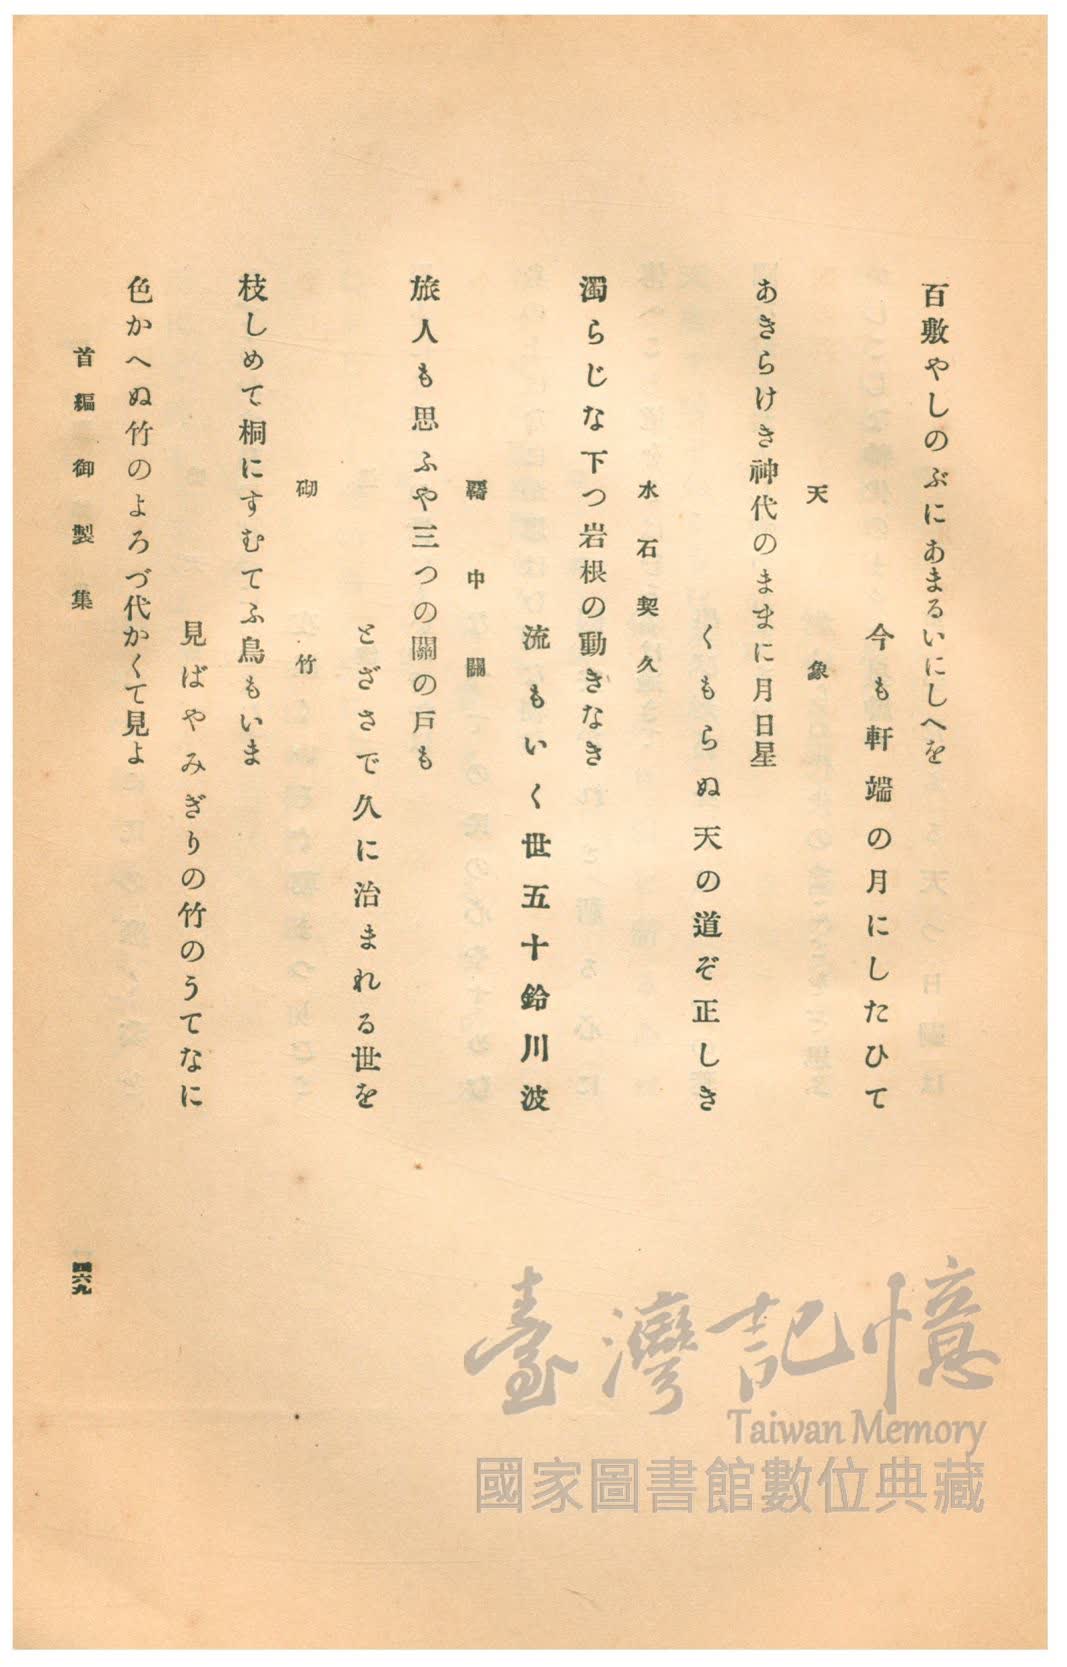 百敷やしのぶにあまるいにしへを
今も軒端の月にしたひて
天象
あきらけき神代のままに月日星
くもらぬ天の道ぞ正しき
水石契久
濁らじな下つ岩根の動きなき
流もいく世五十鈴川波
羇中關
旅人も思ふや三つの關の戸も
とざさで久に治まれる世を
砌竹
枝しめて桐にすむてふ鳥もいま
見ばやみぎりの竹のうてなに
色かへぬ竹のよろづ代かくて見よ
首編御製集
四六九
臺灣記憶
Taiwan Memory
國家圖書館數位典藏